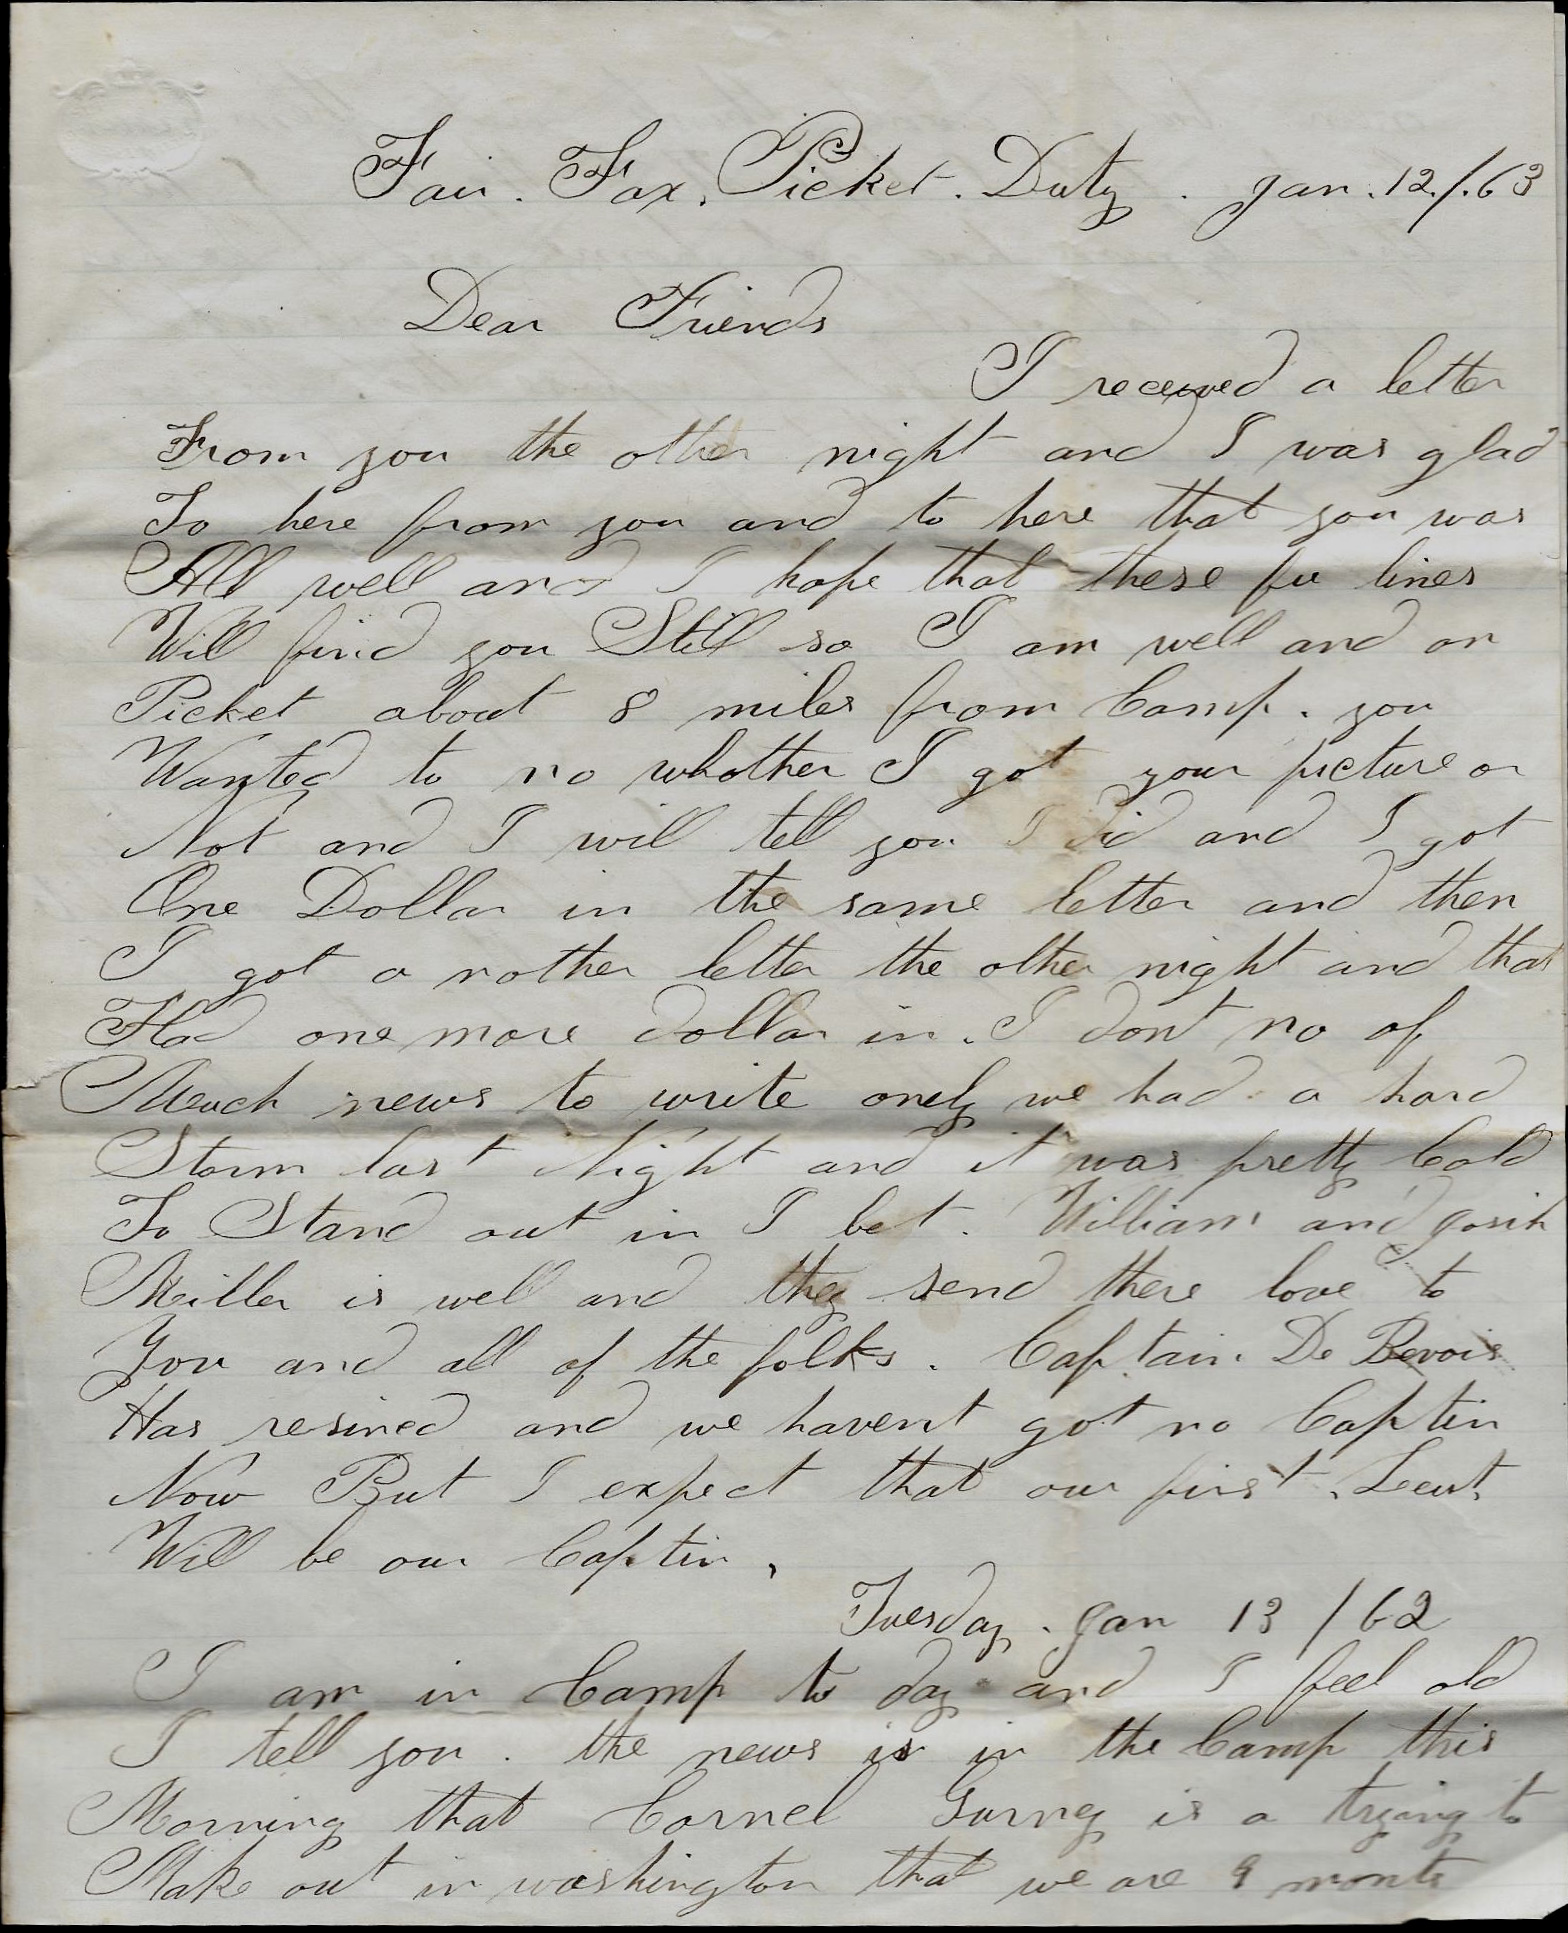 Fair . Fax . Picket . Duty . Jan . 12 /. 63
Dear Friends
I received a letter
From you the other night and I was glad
To here from you and to here that you was
All well and I hope that these fu lines
Will find you Still so I am well and on
Picket about 8 miles from Camp . you
Wanted to no whother I got your picture or
Not and I will tell you I did and I got
One Dollar in the same letter and then
I got a nother letter the other night and that
Had one more dollar in . I dont no of
Meuch news to write onely we had a hard
Storm last Night and it was pretty Cold
To Stand out in I bet . William and Josih
Miller is well and they send there love to
You and all of the folks . Captain . De Bevois
Has resined and we havent got no Captin
Now But I expect that our first . Leut .
Will be our Captin .
Tuesday . Jan 13 / 62
I am in Camp to day and I feel old
I tell you . the news is in the Camp this
Morning that Cornel Gurney is a trying to
Make out in washington that we are 9 month